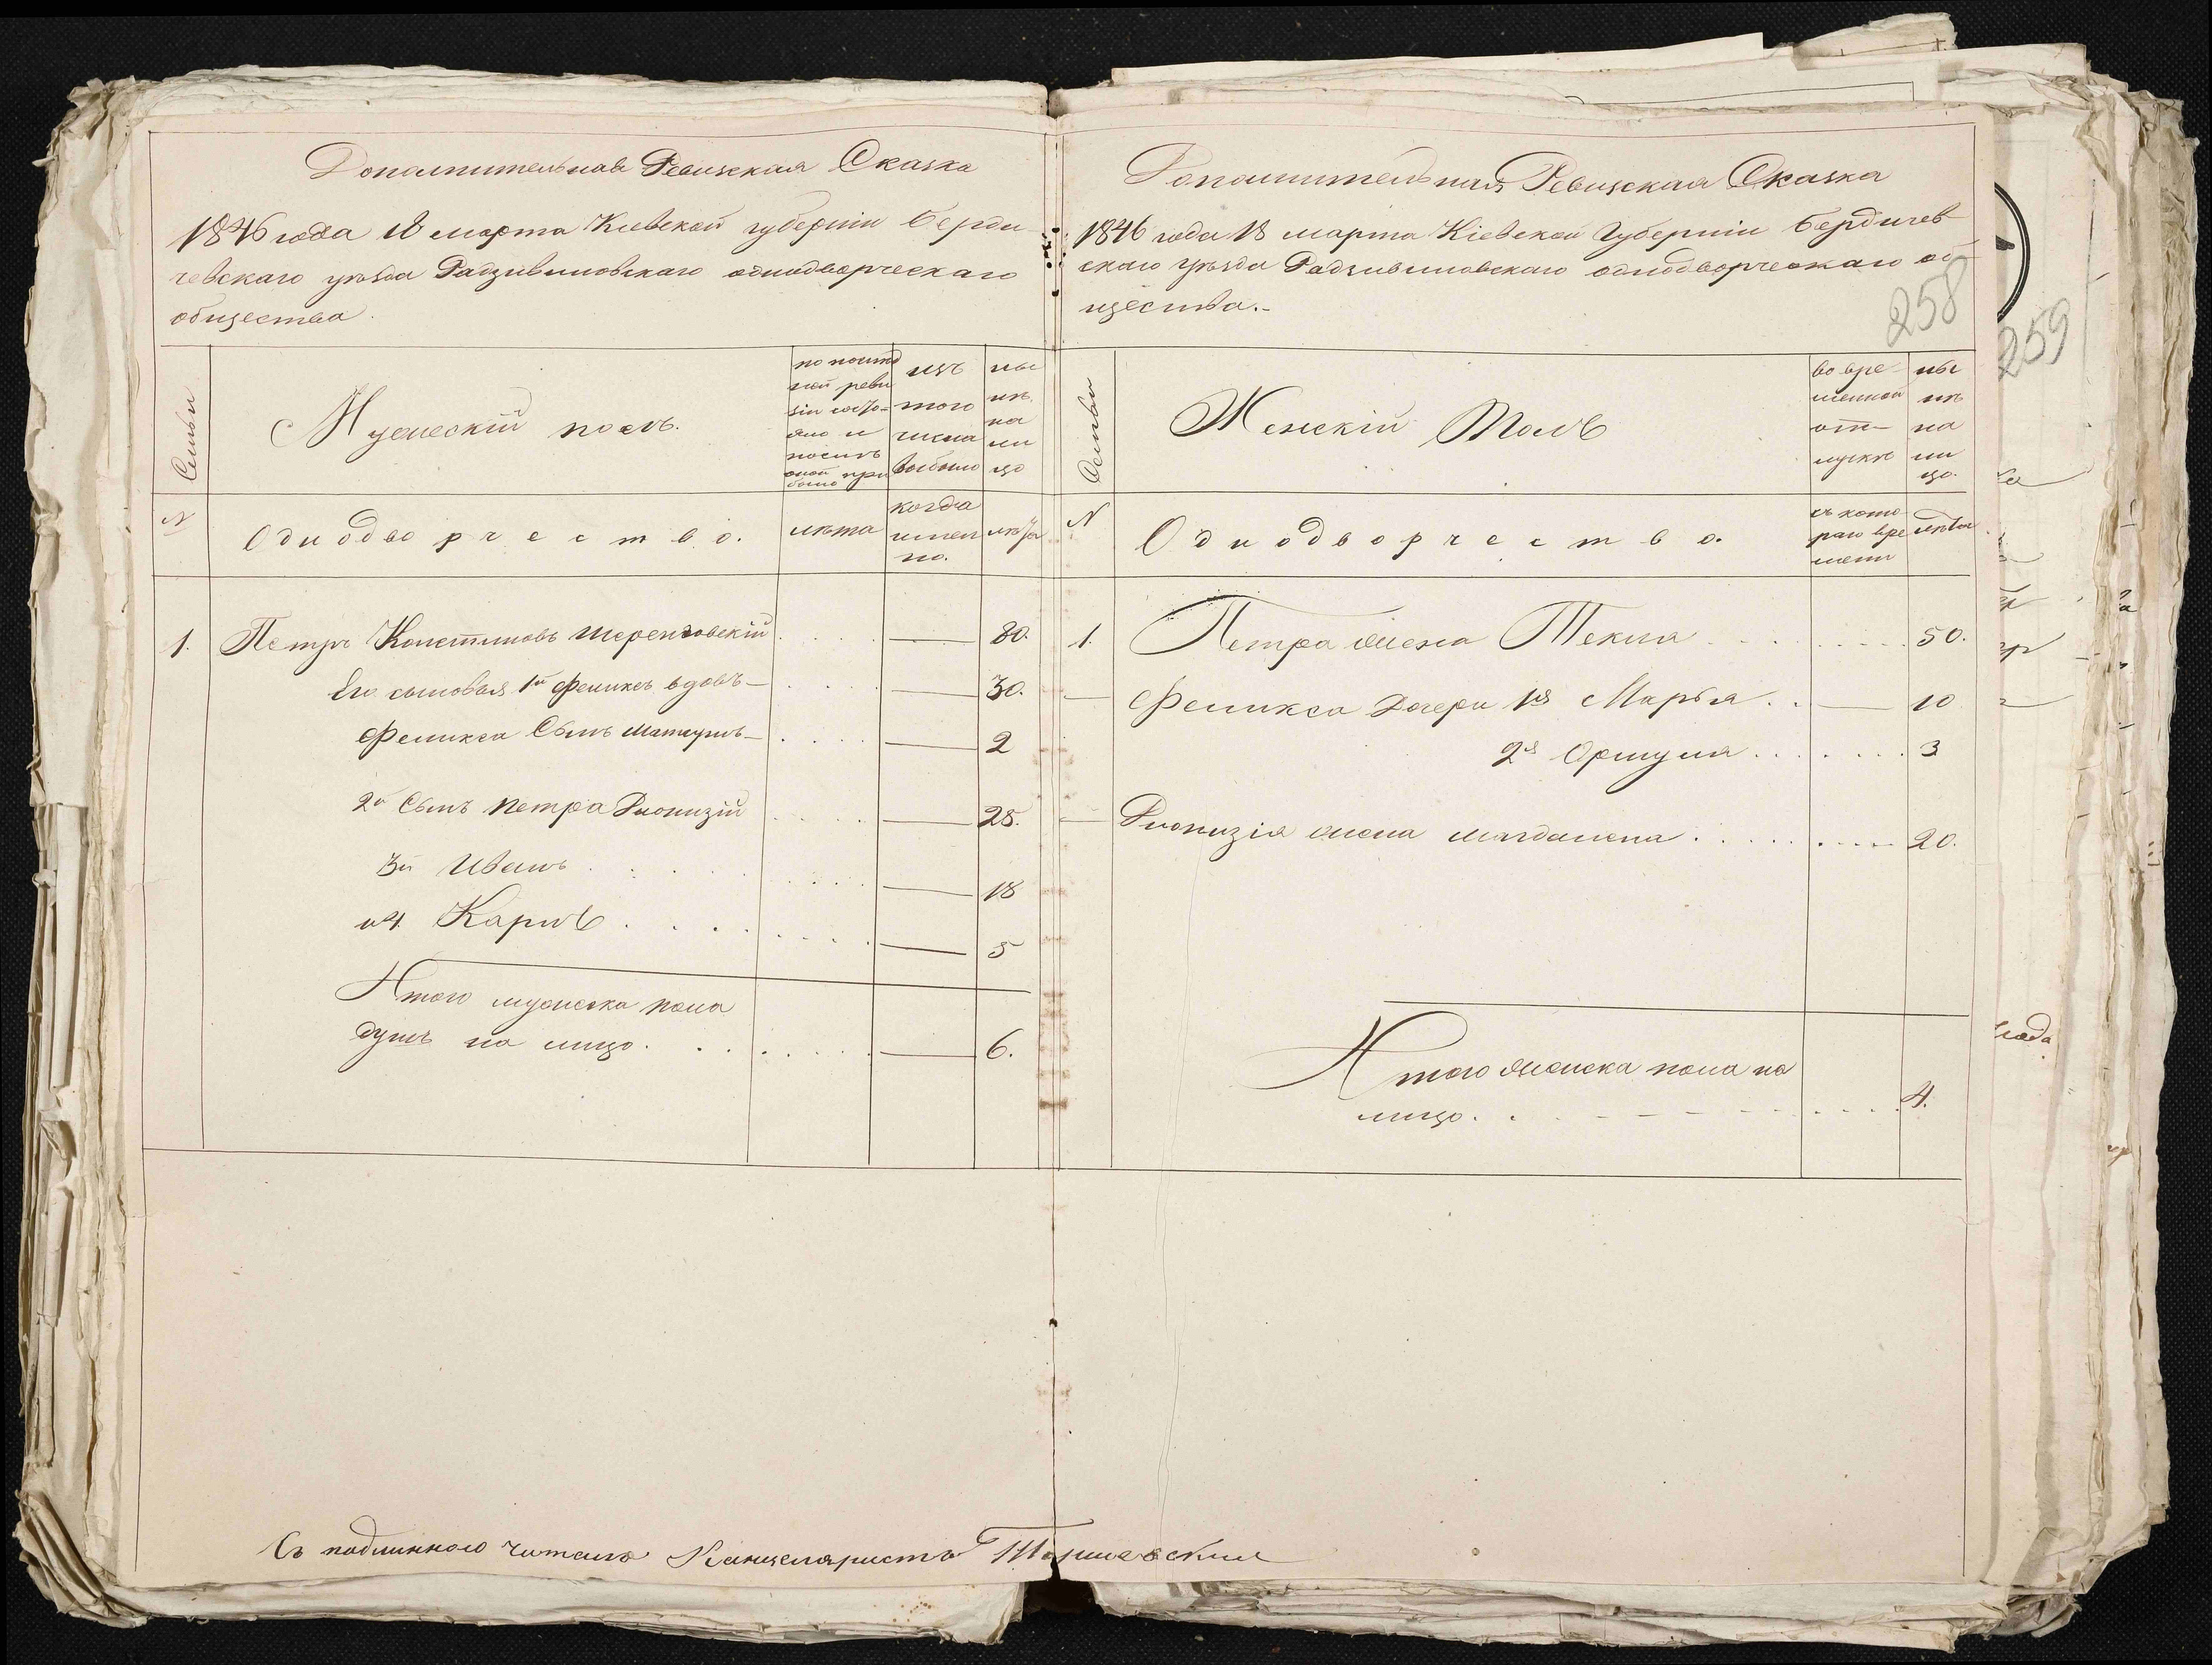 Дополнительная Ревизская Сказка
1846 года 18 марта Киевской губернии Берди-
чевскаго уѣзда Радзивиловскаго однодворческаго
общества.
Семьи
Мужескій полъ.
по послѣд
ней реви
зіи состо-
яло и
послѣ
оной при
было
изъ
того
числа
выбыло
ны
нѣ
на
ли
цо
N
Однодворчество.
лѣта
когда
имен
но.
лѣта
1. Петръ Константиновъ 80.
Его сыновья 1й Феликсъ вдовъ 30.
Феликса Сынъ 2
2й Сынъ Петра Дионизій 25.
3й Иванъ 18
и 4 Карлъ 5
Итого мужеска пола
душъ на лицо. 6.
Дополнительная Ревизская Сказка
1846 года 18 марта Кіевской Губерніи Бердичев
скаго уѣзда Радзивиловскаго однодворческаго об-
щества.-
258
259
Семьи
Женскій Полъ
во вре-
менной
от-
лучкѣ
ны
нѣ
на
ли
цо.
N
Однодворчество.
съ кото
раго вре
мени
лѣта
1. Петра жена Текля 50.
Феликса Дочери 1я Марья 10
2я Оршуля 3
Дионизія жена Магдалена 20.
Итого женска пола на
лицо. 4.
Съ подлиннаго читалъ Канцеляристъ